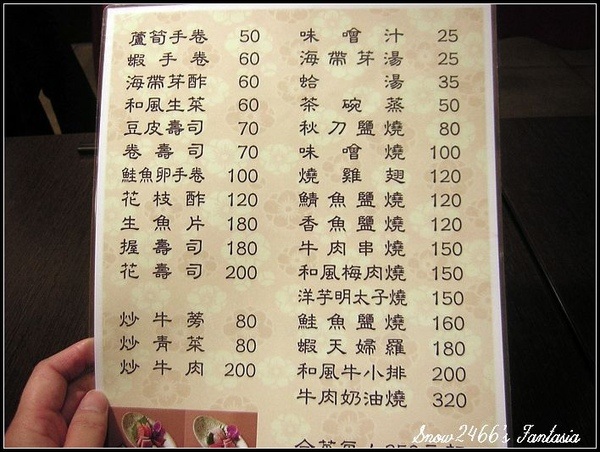 蘆筍手卷 50
蝦手卷 60
海帶芽酢 60
和風生菜 60
豆皮壽司 70
卷壽司 70
鮭魚卵手卷 100
花枝酢 120
生魚片 180
握壽司 180
花壽司 200
炒牛蒡 80
炒青菜 80
炒牛肉 200
味噌汁 25
海帶芽湯 25
蛤湯 35
茶碗蒸 50
秋刀鹽燒 80
味噌燒 100
燒雞翅 120
鯖魚鹽燒 120
香魚鹽燒 120
牛肉串燒 150
和風梅肉燒 150
洋芋明太子燒 150
鮭魚鹽燒 160
蝦天婦羅 180
和風牛小排 200
牛肉奶油燒 320
Snow2466's Fantasia